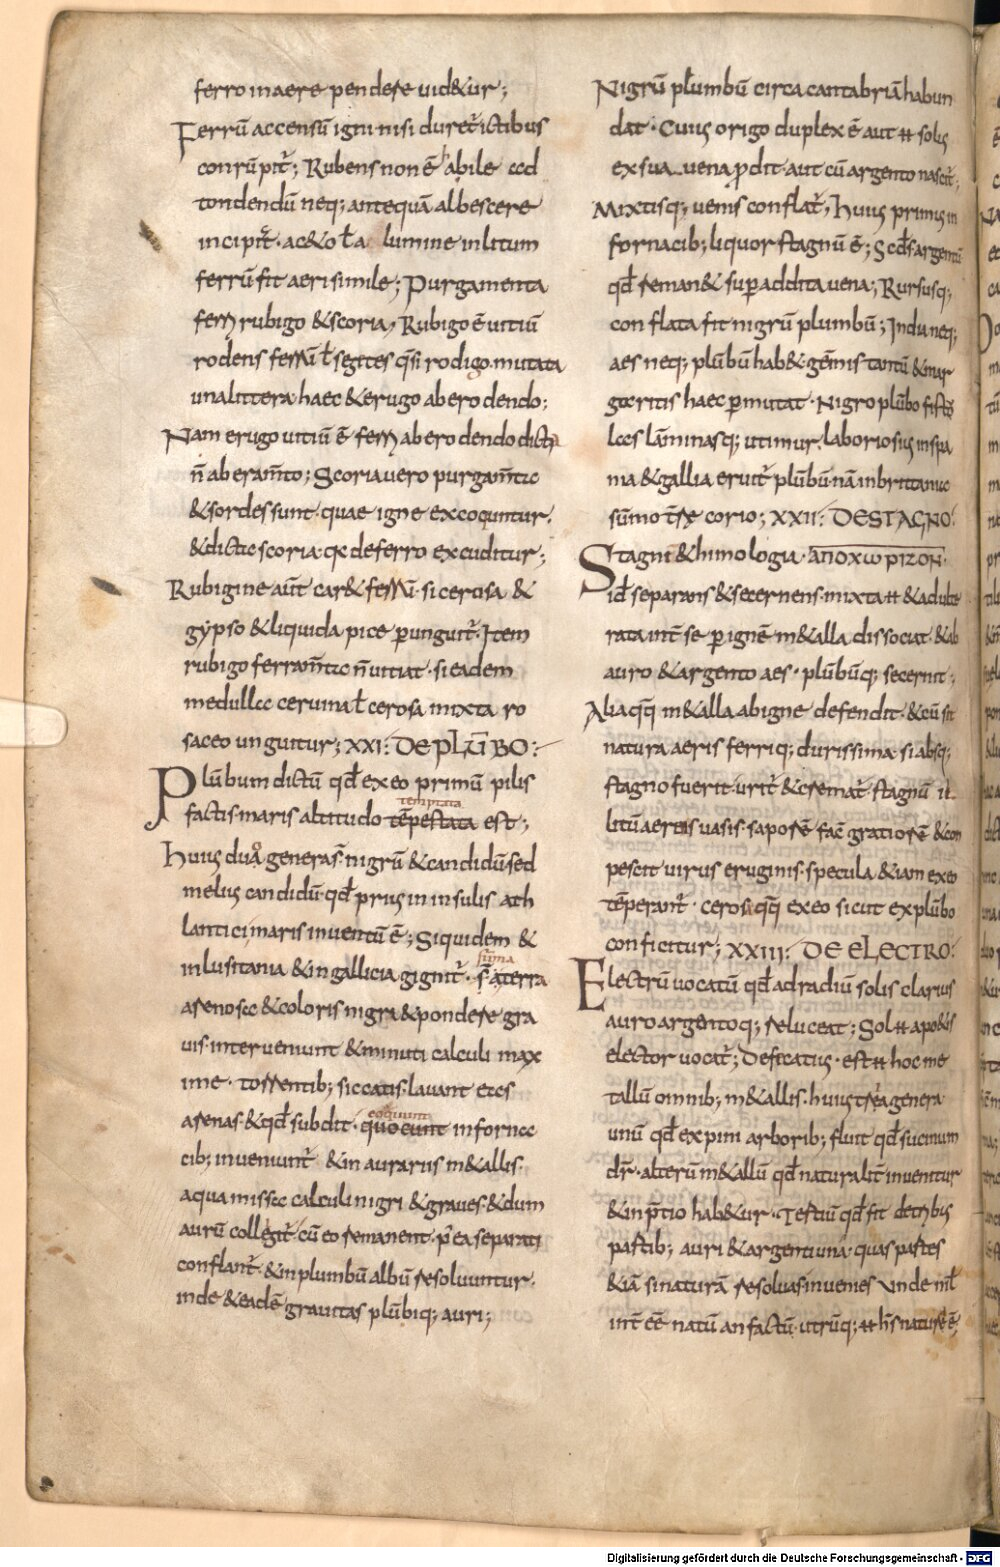 ferro in aere pendere uid&ur;
Ferrū accensū igni nisi duret̄ ictibus
conrūpit̄; Rubens non ē habile ad
tondendū neq; antequā albescere
incipit̄· ac&o ł a lumine inlitum
ferrū fit aeri simile; Purgamenta
ferri rubigo &scoria, Rubigo ē uitiū
rodens ferrū ł segites q̄si rodigo· mutata
una littera haec &erugo ab erodendo;
Nam erugo uitiū ē ferri ab erodendo dicta
n̄ ab eram̄to; Scoria uero purgam̄ta
&sordes sunt· quae igne excoquntur·
&dicta scoria· qa de ferro excuditur;
Rubigine aūt car& ferrū· si cerusa &
gẏpso &liquida pice pungūit̄· Item
rubigo ferram̄ta n̄ uitiat· si eadem
medulla ceruina ł cerosa mixta ro
saceo unguitur; XXI: DE PLŪBO:
Plūbum dictū qđ ex eo primū pilis
temptata
factis maris altitudo tēpestata est;
Huius duą genera s̄· nigrū &candidū· sed
melius candidū· qđ prius in insulis ath
lantici maris inuentū ē; Siquidem &
sūma
in lusitania &in gallicia gignit̄· s̄a terra
arenosa &coloris nigra &pondere gra
uis· interueniunt &minuti calculi max
ime· torrentib; siccatis· lauant eas
coquunt
arenas· &qđ subdit· quocunt in forna
cib; inueniunt̄ &in aurariis m&allis·
aqua missa calculi nigri &graues· &dum
aurū collegit̄· cū eo remanent· p̄ ea separati
conflant̄· &in plumbū albū resoluuntur·
inde &eadē grauitas plūbiq; auri;
Nigrū plumbū circa cantabriā habun
dat· Cuius origo duplex ē aut ħ solius
ex sua uena ꝓdit· aut cū argento nascit̄;
Mixtisq; uenis conflat̄, Huius primus in
fornacib; liquor stagnū ē; Scđs argentū
qđ reman& sup addita uena; Rursusq;
conflata fit nigrū plumbū; India neq;
aes neq; plūbū hab&· gēmis tantū &mar
garitis haec pmutat· Nigro plūbo fistu
las lāminasq; utimur· laboriosius in spa
nia &gallia eruit̄ plūbū· nā in brittania
sūmo t̄re corio; XXII: DE STAGNO:
Stagni &himologia· ΑΠΟΧωΡΙΖΟΝ·
iđ separans &secernens· mixta ħ &adulte
rata int̄ se p ignē m&alla dissociat· &ab
auro &argento aes· plūbūq; secernit;
Alia qq̄ m&alla ab igne defendit· &cū sit
natura aeris ferriq; durissima· si absq;
stagno fuerit· urit̄ &cremat̄· stagnū il
litū aereis uasis· saporē fac̄ gratiorē &con
pescit uirus eruginis· specula &iam ex eo
tēperant̄· cerosa qq̄ ex eo sicut ex plūbo
conficitur; XXIII: DE ELECTRO:
Electrū uocatū qđ ad radiū solis clarius
auro argentoq; reluceat; Sol ħ a poetis
elector uocat̄; Defecatius· est ħ hoc me
tallū omnib; m&allis· huius tria genera·
unū qđ ex pini arborib; fluit qđ sucinum
dr̄· alterū m&allū qđ naturalit̄ inuenitur
&in p̄tio hab&ur· Tertiū qđ fit de trib;
partib; auri &argenti una· quas partes
&iā si naturā resoluas inuenies· Unde nił
int̄ēē natū an factū· utrūq; ħ h's naturę ē;
Digitalisierung gefördert durch die Deutsche Forschungsgemeinschaft - DFG